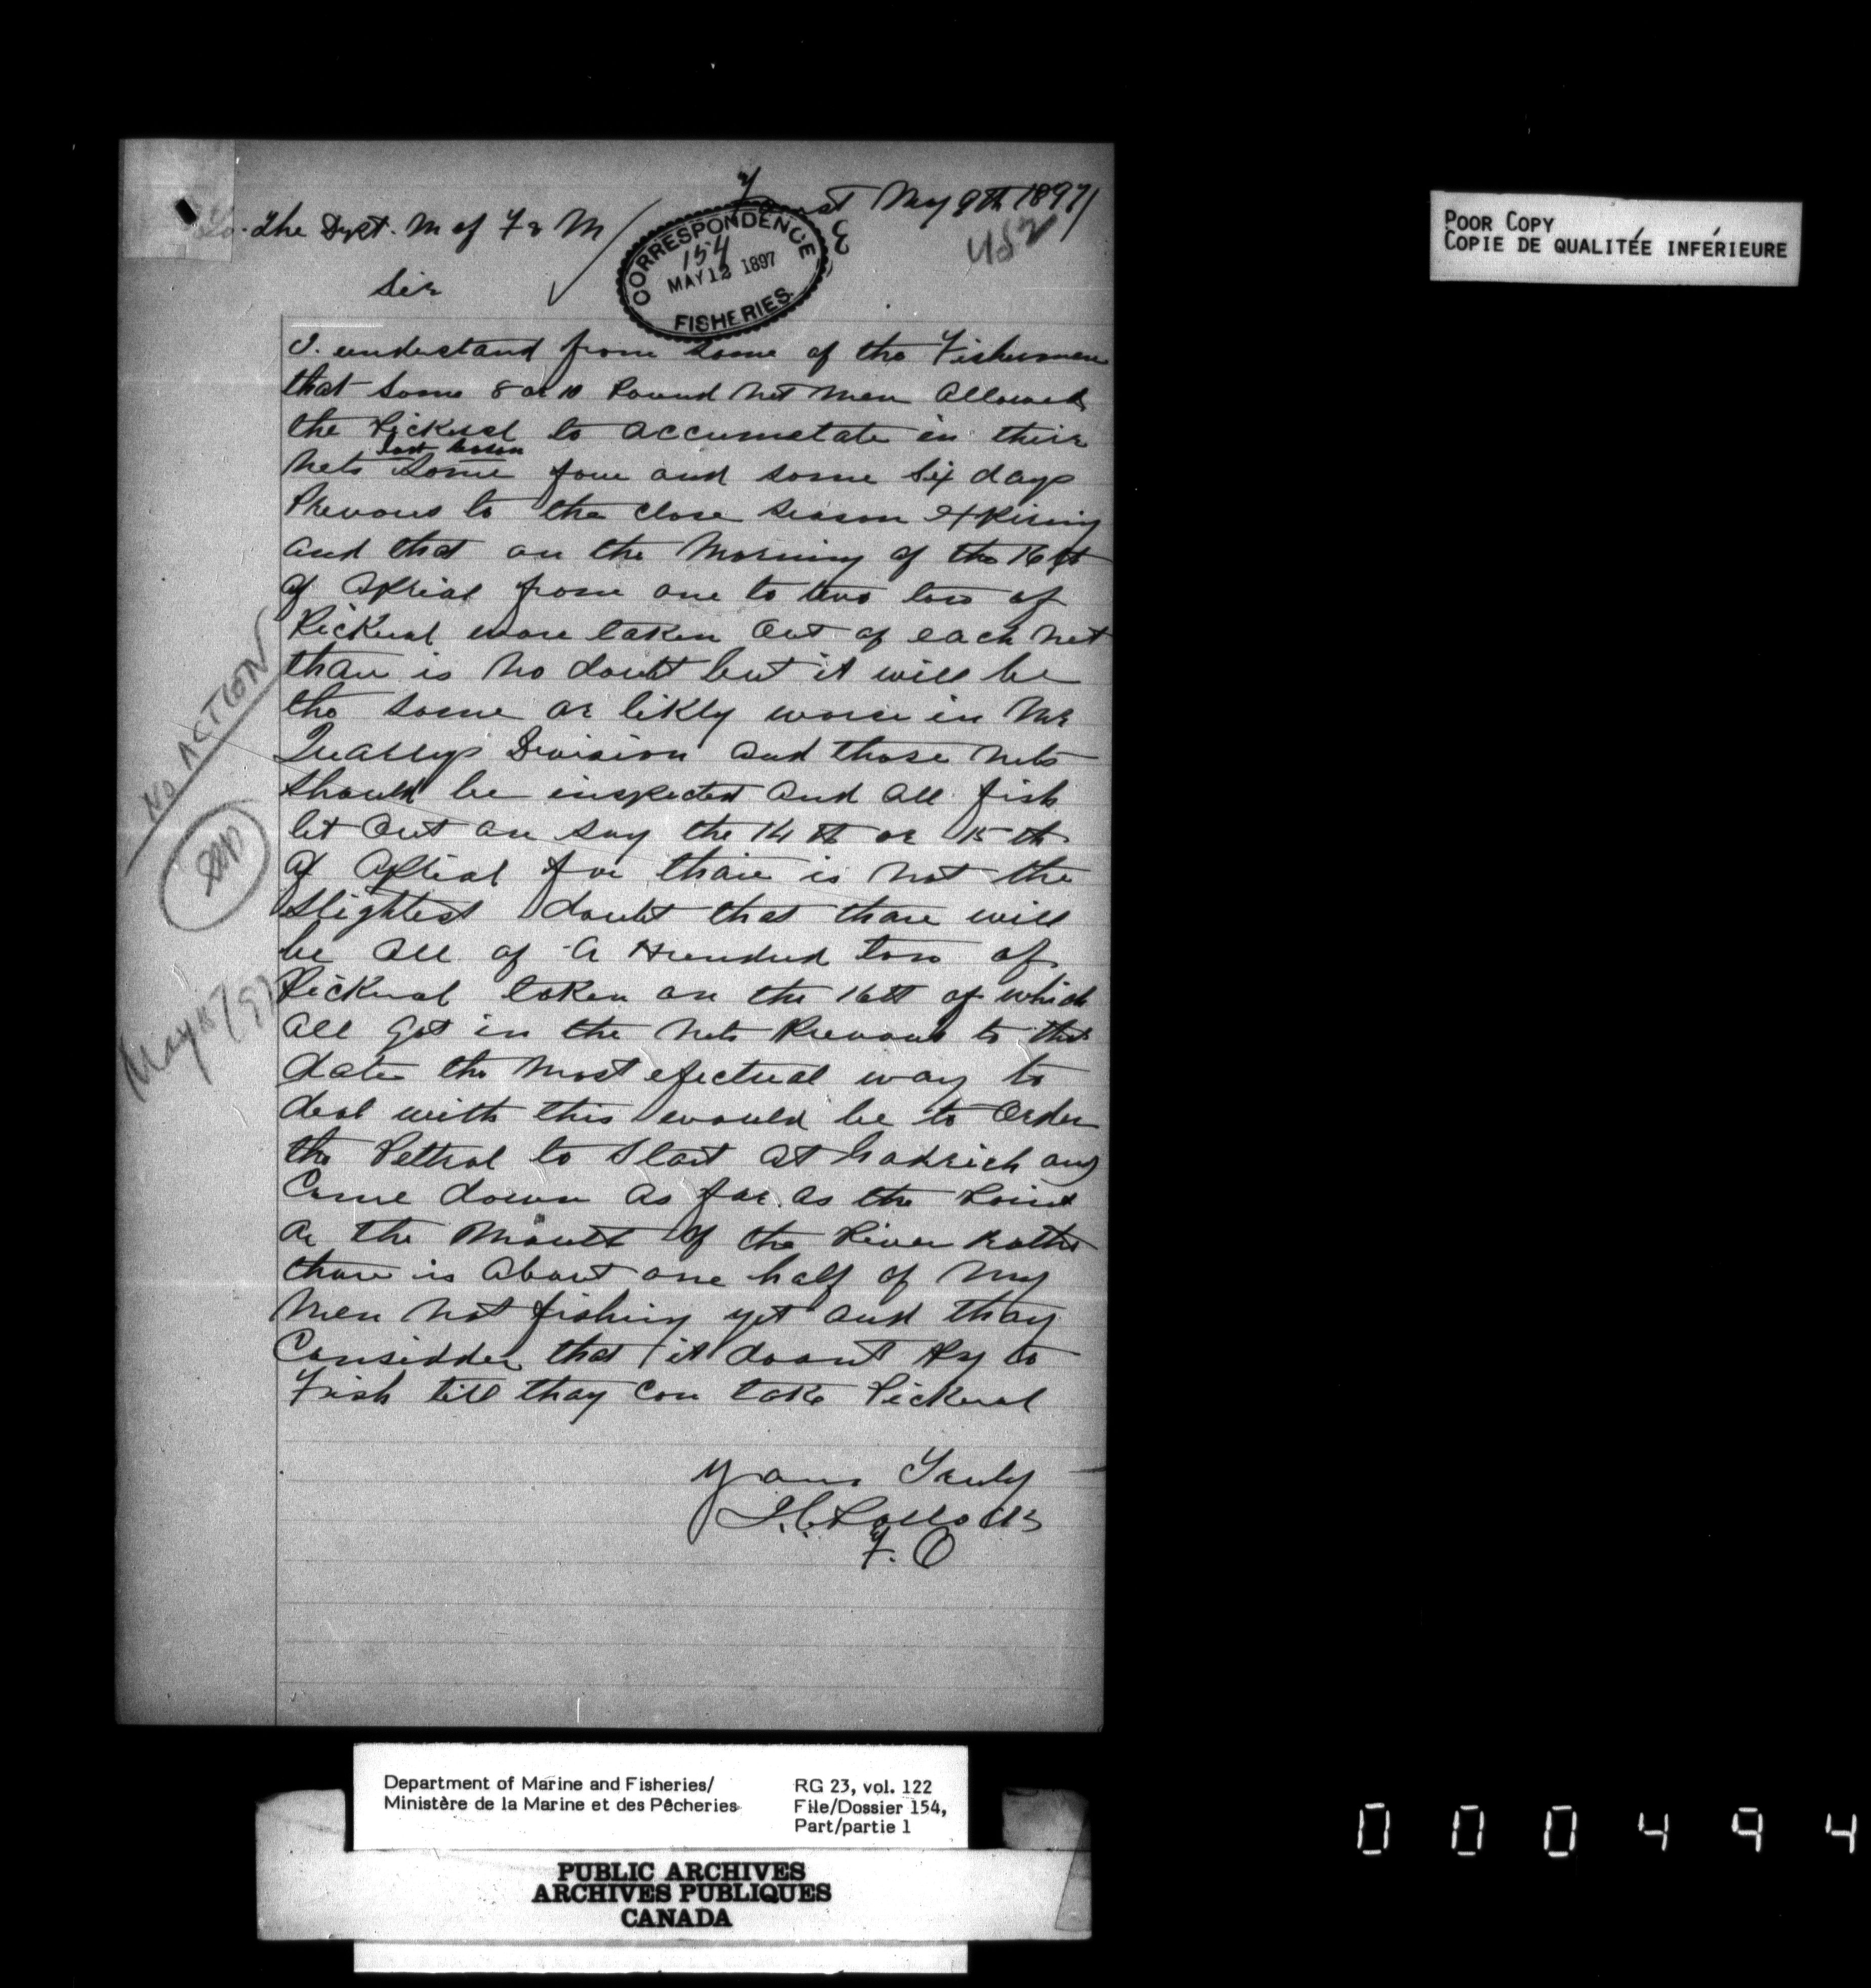 Forest May 9th 1897
452
To. The Dept. M of F & M
Sir
CORRESPONDENCE
154
MAY 12 1897
FISHERIES.
POOR COPY
COPIE DE QUALITÉE INFÉRIEURE
I. understand from some of the Fishermen
that some 8 or 10 Pound net men allowed
the Pickrel to accumetate in their
last season
nets some four and some six days
Prevous to the close season expiring
and that on the morning of the 16th
of Apriel from one to two tons of
Pickrel ware taken out of each net
thare is no doubt but it will be
the same or likly worse in Mr
Division and those nets
should be inspected and all fish
let out on say the 14th or 15th
of Apriel for thair is not the
slightest doubt that thare will
be all of a Hundred tons of
Pickrel taken on the 16th of which
all got in the nets Prevous to that
date the most efectual way to
deal with this would be to order
the Pettrel to start at Godrich and
Come down as far as the Point
or the Mouth of the River rather
thare is about one half of my
men not fishing yet and thay
Considder that it doant Py to
Fish till thay Can take Pickrel
Yours Truly
F. O
NO ACTION
May 18/97
Department of Marine and Fisheries/
Ministère de la Marine et des Pêcheries
RG 23, vol. 122
File/Dossier 154,
Part/partie 1
PUBLIC ARCHIVES
ARCHIVES PUBLIQUES
CANADA
000494